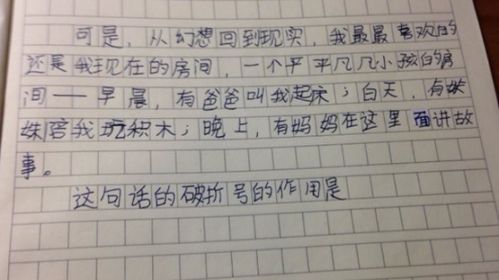 可是，从幻想回到现实，我最最喜欢的
还是我现在的房间，一个平平凡凡小孩的房
间——早晨，有爸爸叫我起床；白天，有妹
妹陪我玩积木；晚上，有妈妈在这里面讲故
事。
这句话的破折号的作用是